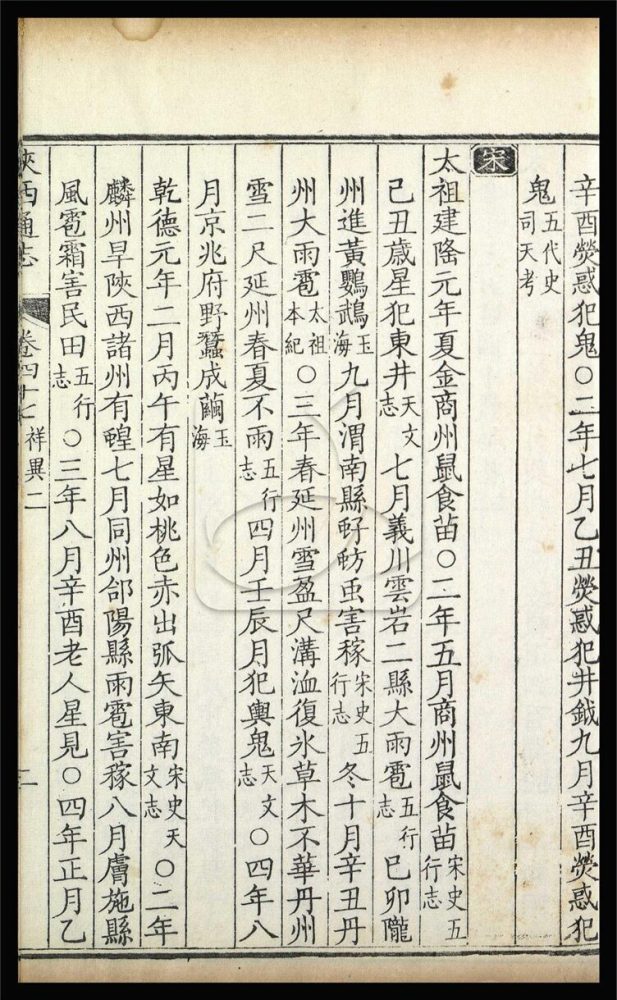 辛酉熒惑犯鬼○二年七月乙丑熒惑犯井鉞九月辛酉熒惑犯
鬼五代史司天考
宋
太祖建隆元年夏金商州鼠食苗○二年五月商州鼠食苗宋史五行志
己丑歲星犯東井天文志七月義川雲岩二縣大雨雹五行志巳卯隴
州進黃鸚鵡玉海九月渭南縣虸蚄虫害稼宋史五行志冬十月辛丑丹
州大雨雹太祖本紀○三年春延州雪盈尺溝洫復氷草木不華丹州
雪二尺延州春夏不雨五行志四月壬辰月犯輿鬼天文志○四年八
月京兆府野蠶成繭玉海
乾德元年二月丙午有星如桃色赤出弧矢東南宋史天文志○二年
麟州旱陝西諸州有蝗七月同州郃陽縣雨雹害稼八月膚施縣
風雹霜害民田五行志○三年八月辛酉老人星見○四年正月乙
陝西通志 卷四十七 祥異二 二